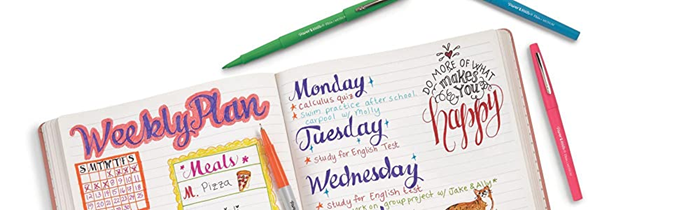 Weekly Plan
S M T W T F S
Meals
M. Pizza
Monday
calculus quiz
swim practice after school
carpool w/ Molly
Tuesday
study for English Test
Wednesday
study for English test
work on group project w/ Jake & Ally
DO MORE OF WHAT
makes
YOU
happy